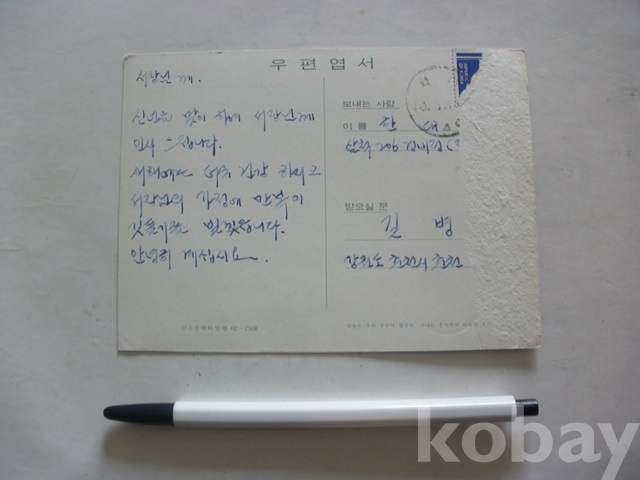 우편엽서
서장님 께.
신년을 맞이 하여 서장님께
인사 드립니다.
새해에는 더욱 건강 하시고
서장님의 가정에 만복이
깃들기를 빌겠읍니다.
안녕히 계십시요.
보내는 사람
이 름
받으실 분
길 병
강원도 춘천시 춘천
kobay